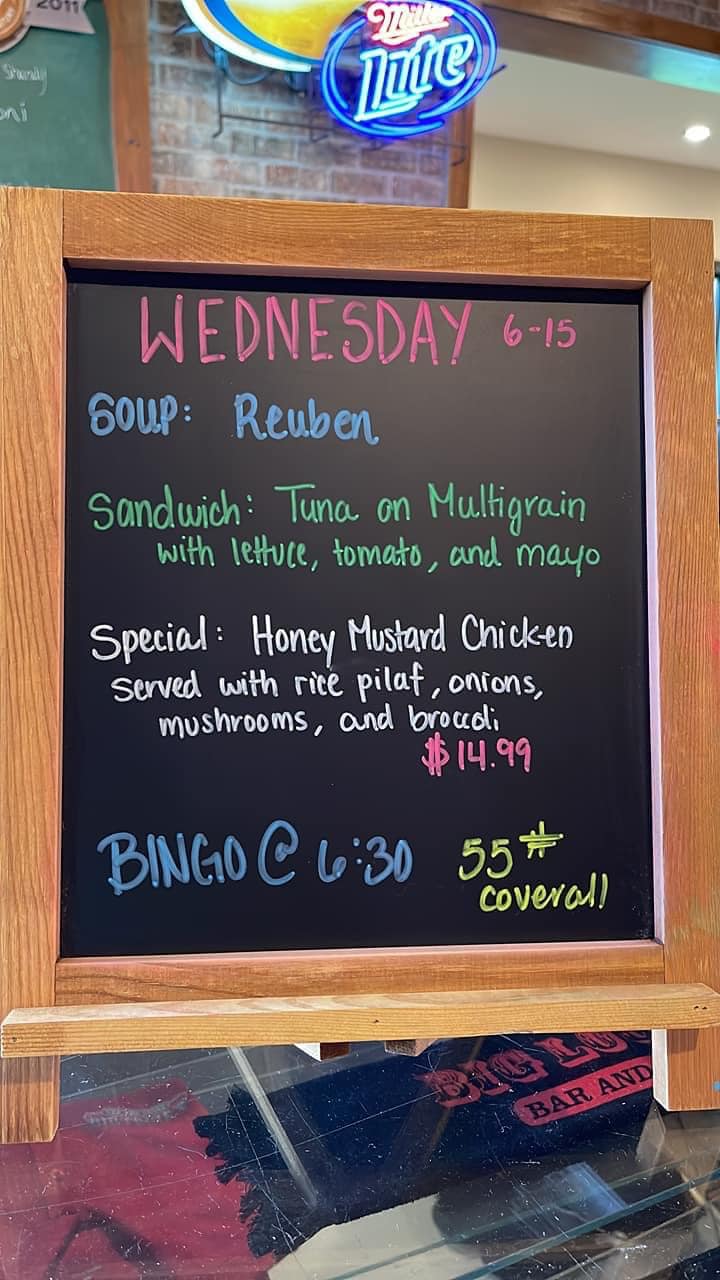 2011
Shandy
oni
Miller
Lite
WEDNESDAY 6-15
SOUP: Reuben
Sandwich: Tuna on Multigrain
with lettuce, tomato, and mayo
Special: Honey Mustard Chicken
Served with rice pilaf, onions,
mushrooms, and broccoli
$14.99
BINGO @ 6:30 55#
coverall
BIG
BAR AND